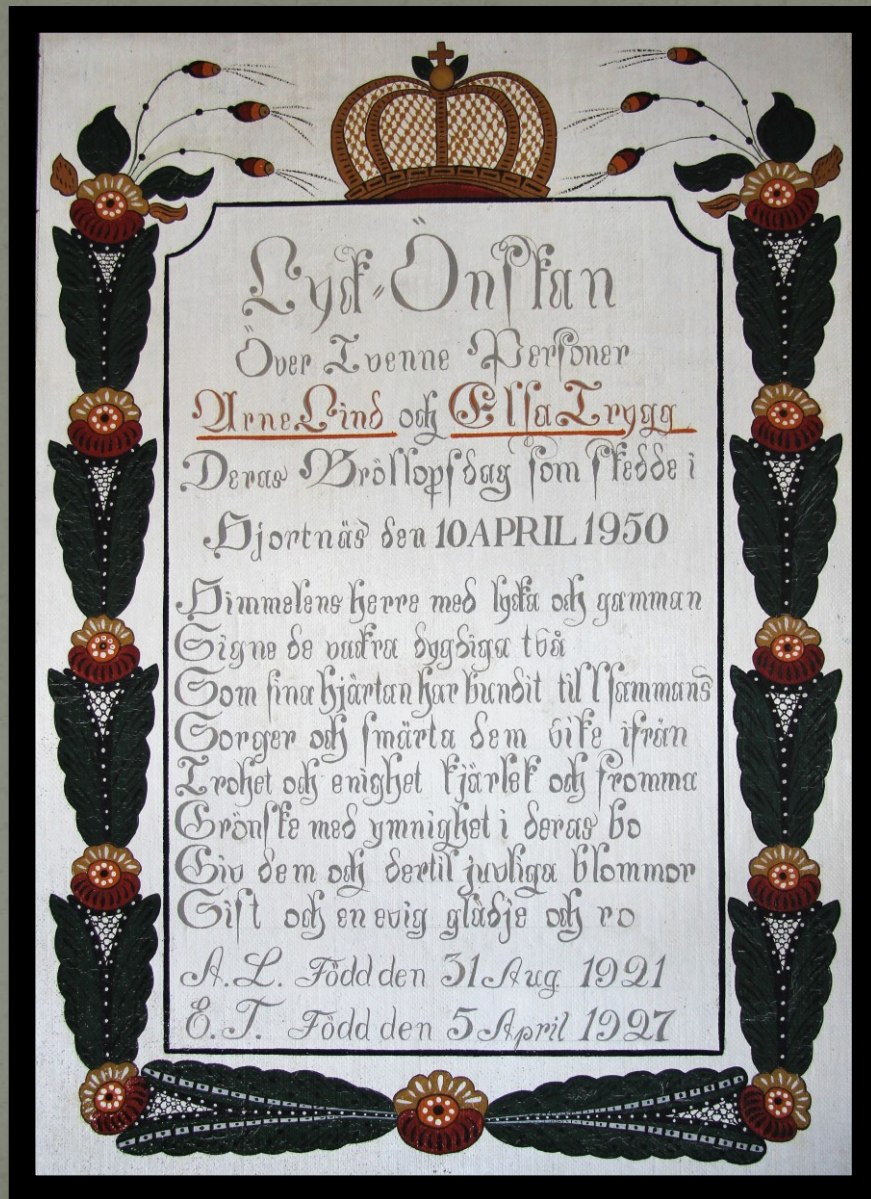 Lyck-Önskan
Över Tvenne Personer
Arne Lind och Elsa Trygg
Deras Bröllopsdag som skedde i
Hjortnäs den 10 APRIL 1950
Himmelens herre med lycka och gamman
Signe de vackra dygdiga två
Som sina hjärtan har bundit till sammans
Sorger och smärta dem vike ifrån
Trohet och enighet kjärlek och fromma
Grönske med ymnighet i deras bo
Giv dem och dertil juvliga blommor
Sist och en evig glädje och ro
A.L. Född den 31 Aug. 1921
E.T. Född den 5 April 1927